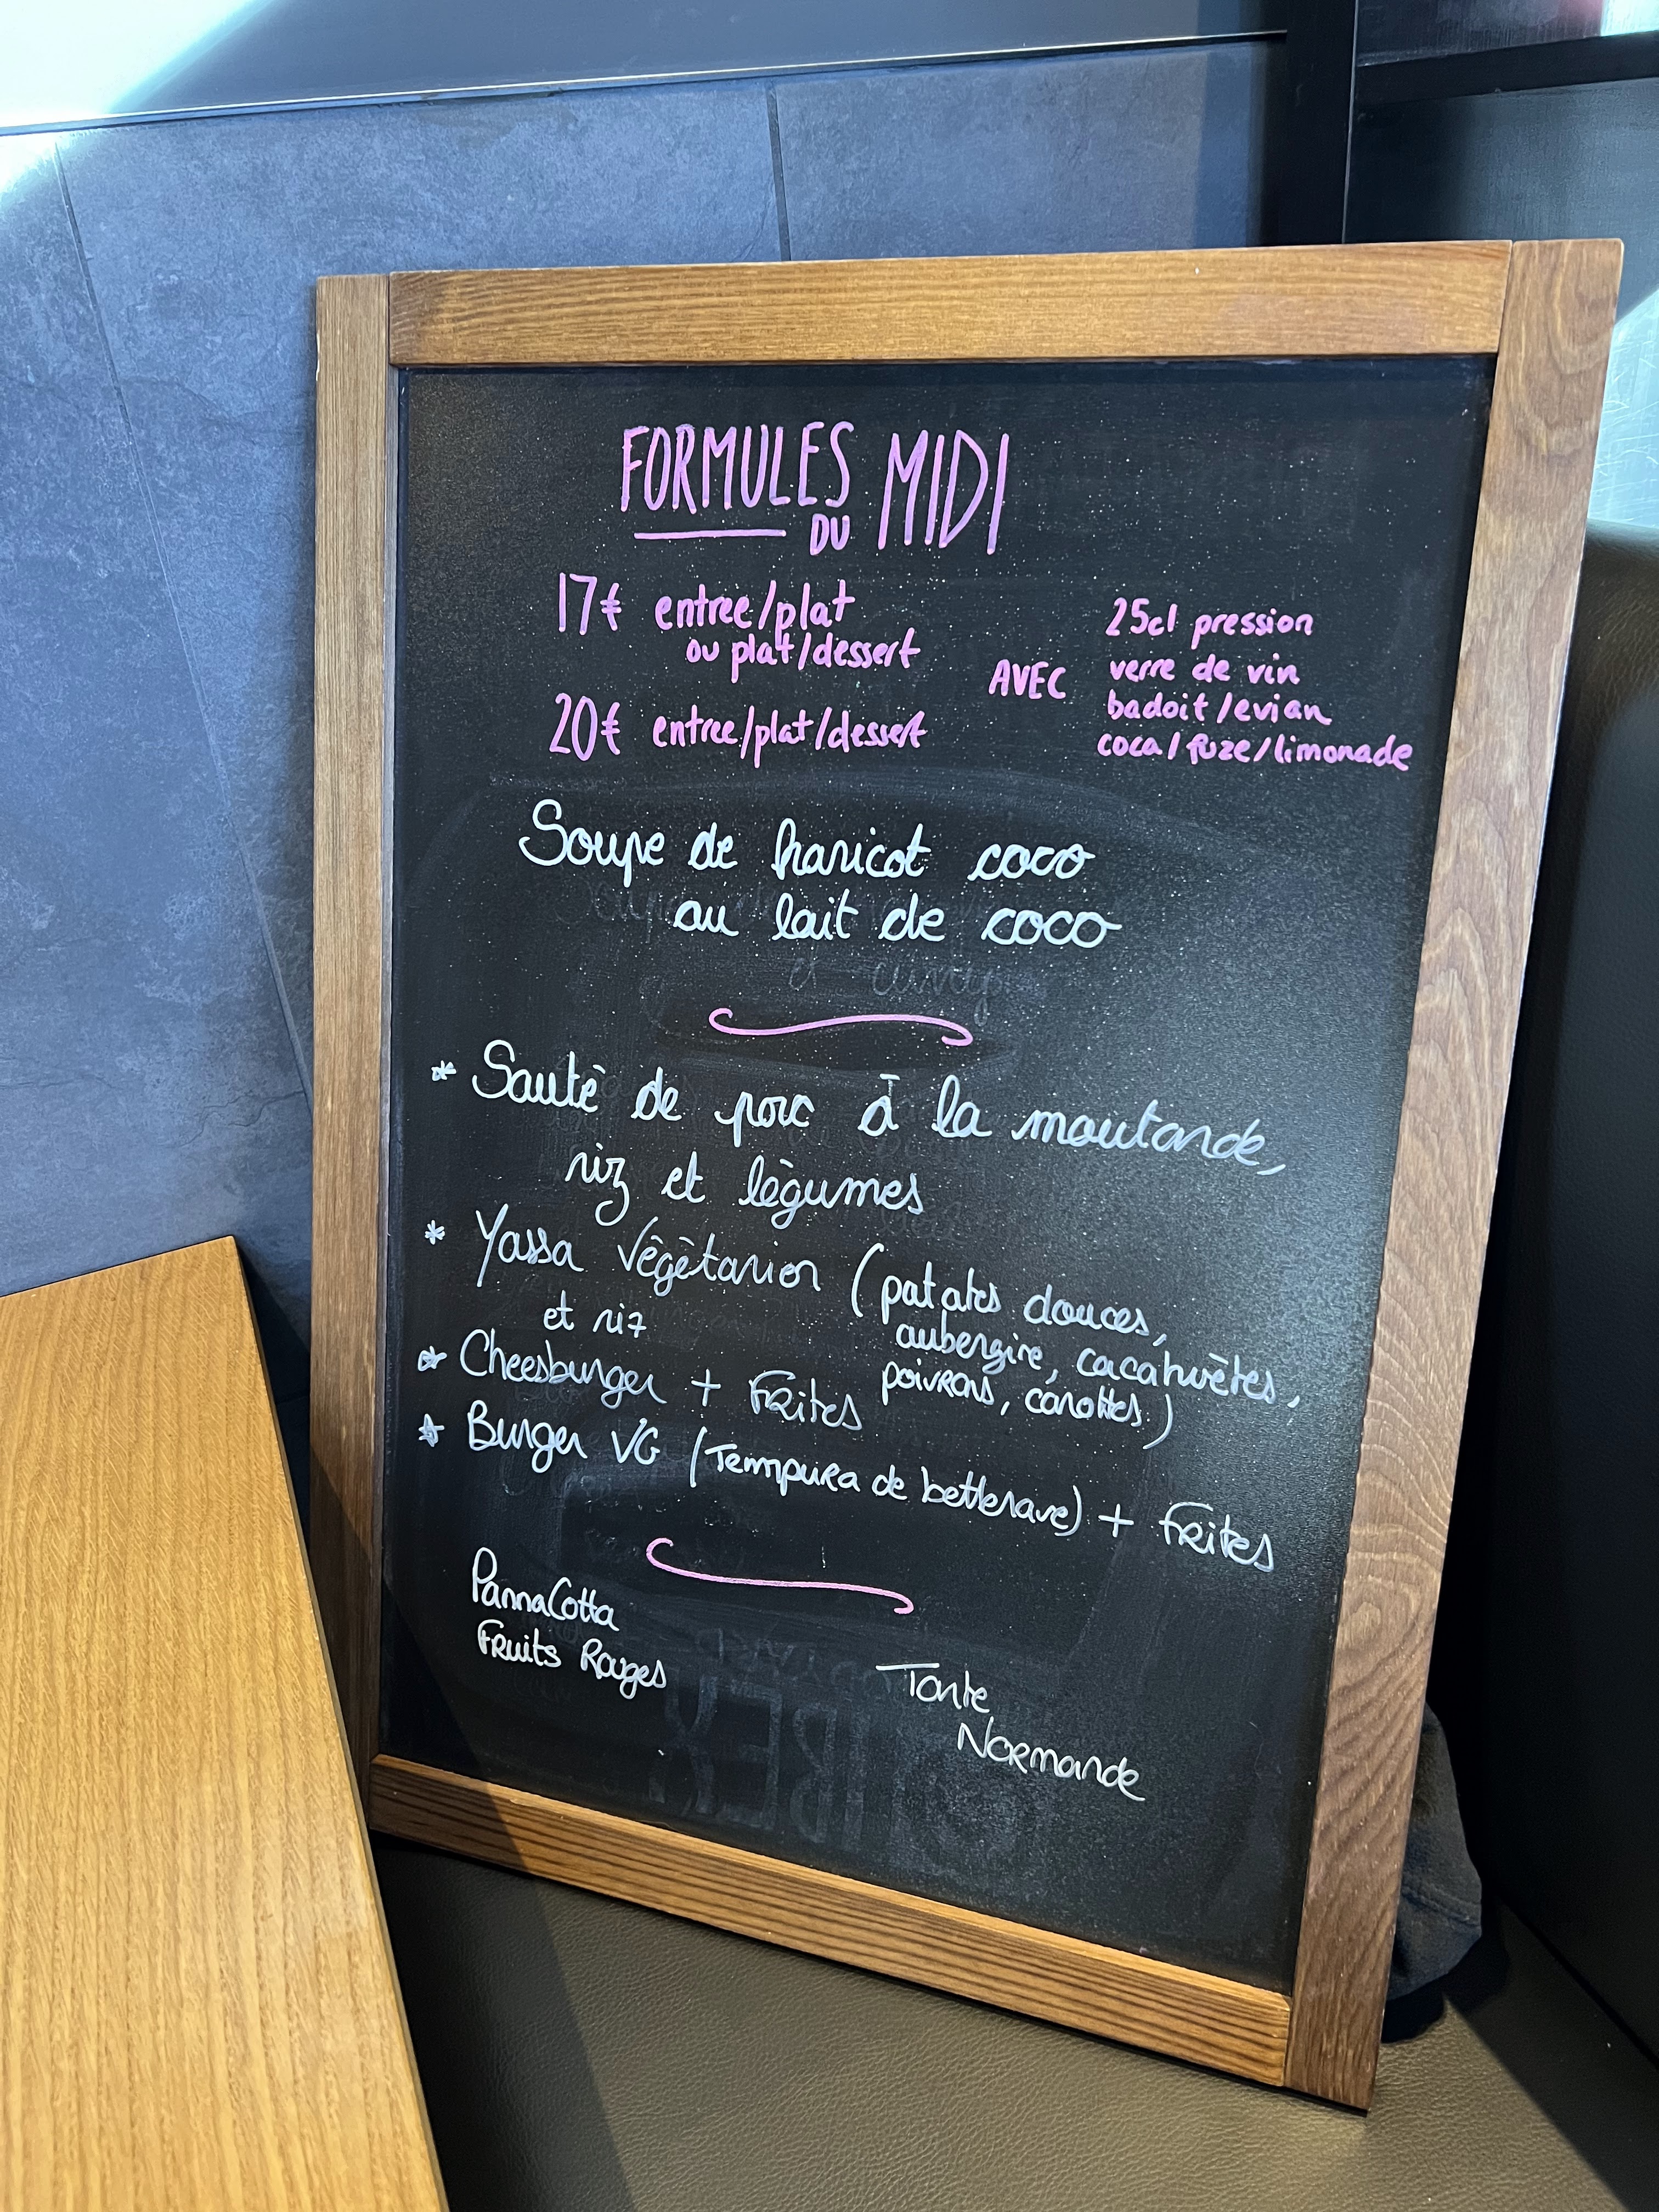 FORMULES DU MIDI
17€ entree/plat
ou plat/dessert
20€ entree/plat/dessert
AVEC
25cl pression
verre de vin
badoit/evian
coca/fuze/limonade
Soupe de haricot coco
au lait de coco
* Sauté de porc à la moutarde,
riz et légumes
* Yassa végétarien (patates douces,
et riz
aubergine, cacahuètes,
poivrons, carottes)
* Cheesburger + Frites
* Burger VG (Tempura de betterave) + Frites
PannaCotta
Fruits Rouges
Tarte
Normande